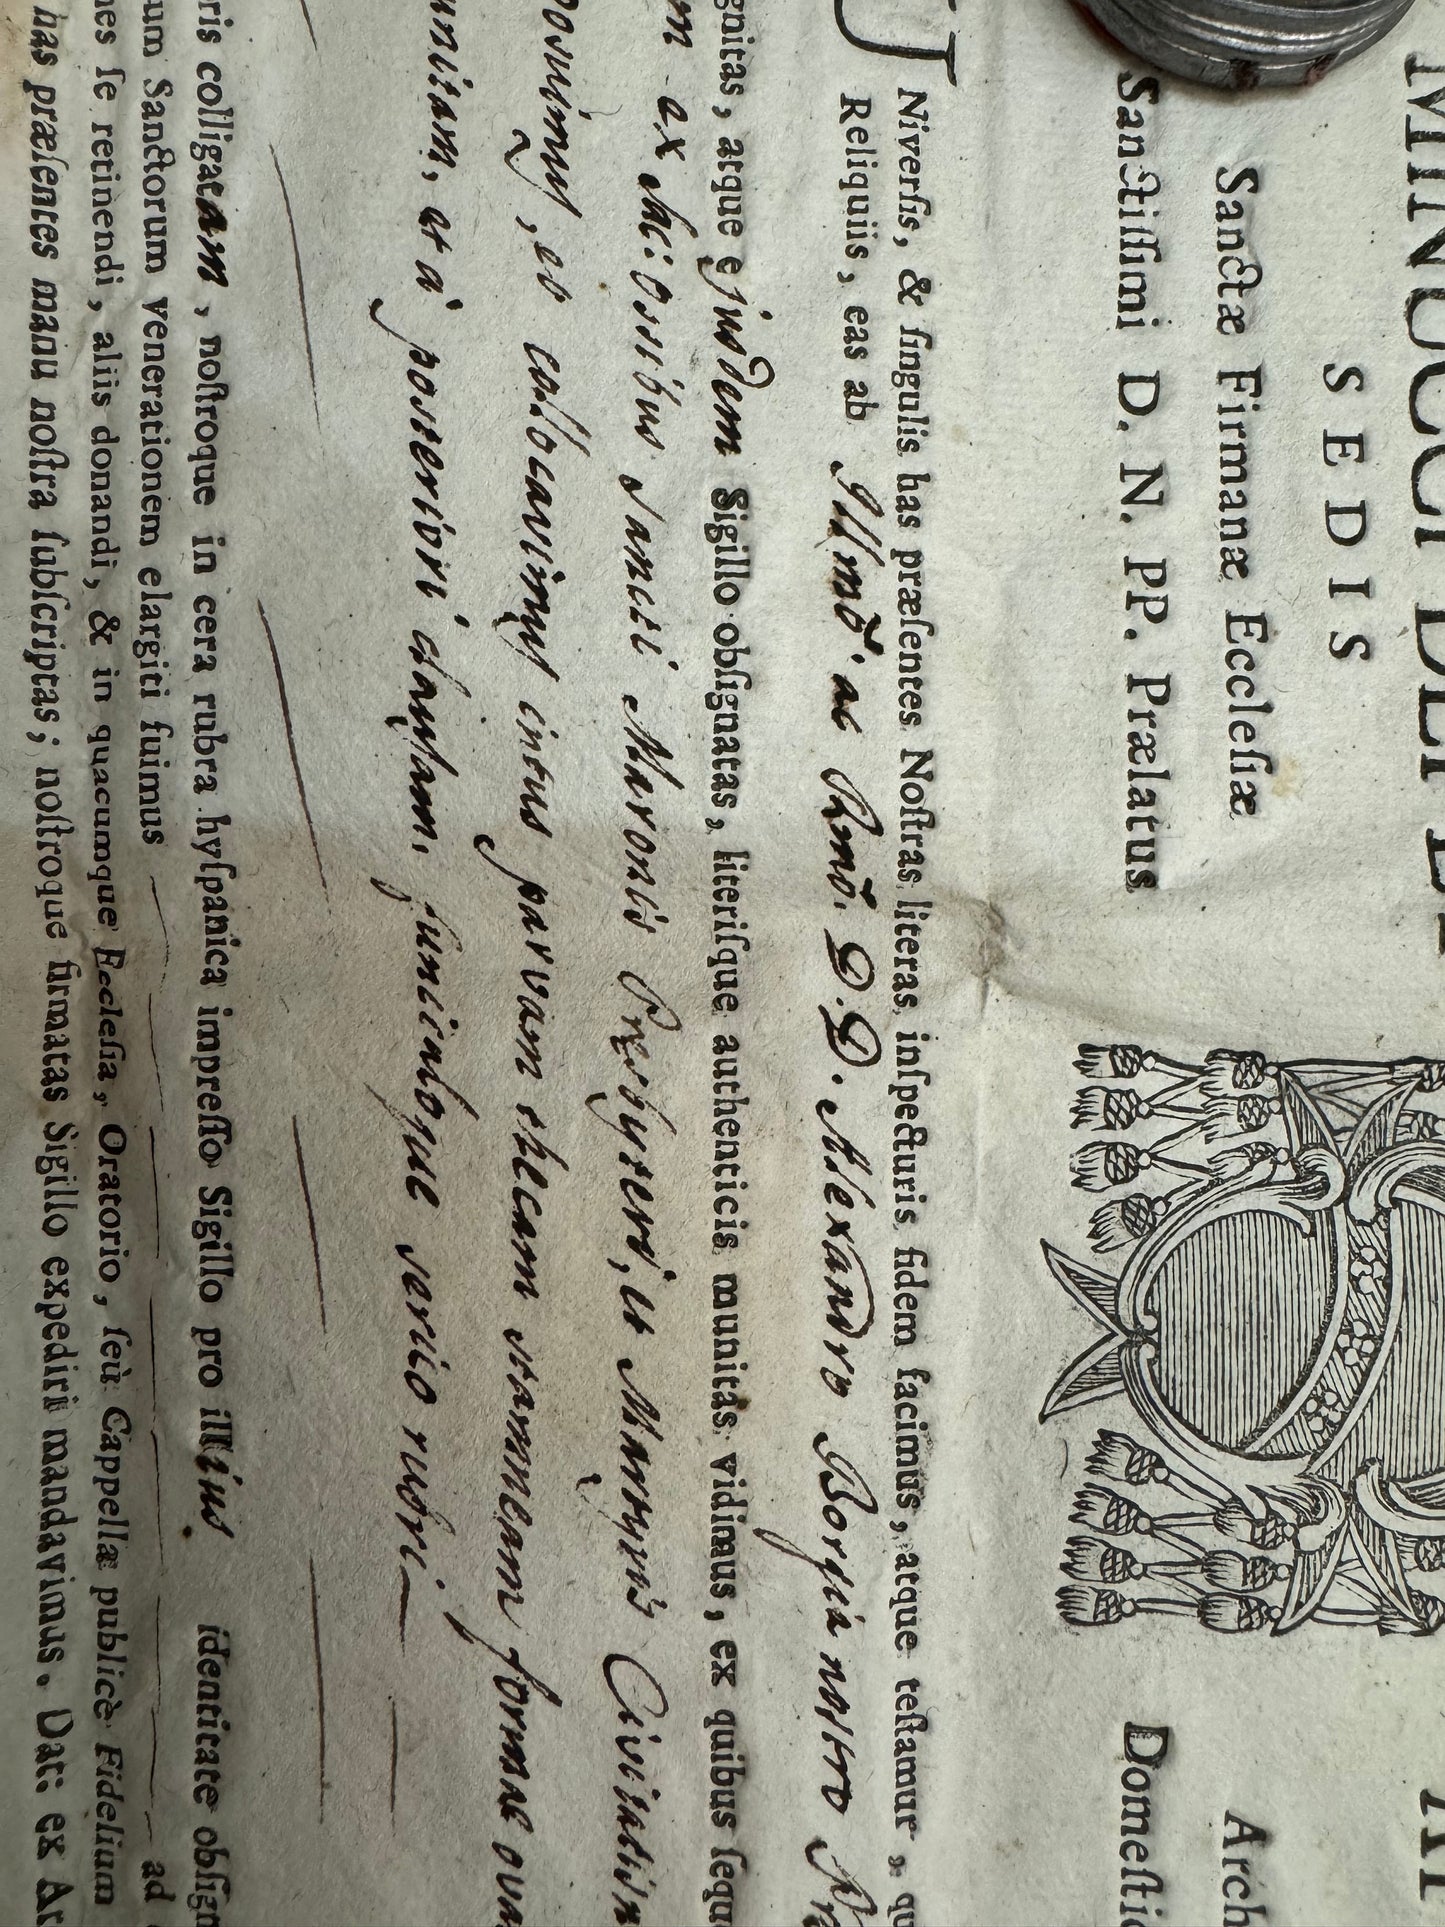 MINUCCI DEI
SEDIS
Sanctæ Firmanæ Eccleſiæ Arch
Sanctiſſimi D. N. PP. Prælatus Domeſtic
UNiverſis, & ſingulis has præſentes Noſtras literas inſpecturis fidem facimus, atque teſtamur, qu
Reliquiis, eas ab Illmo. ac Rmo. D. D. Alexandro Borgia nostro Præ
gnitas, atque ejusdem Sigillo obſignatas, literiſque authenticis munitas vidimus, ex quibus ſequ
m ex Sac: Ossibus Sancti Maronis Presbyteri, et Martyris Civitatis n
posuimus, et collocavimus intus parvam thecam stanneam formae ova
unitam, et à posteriori clausam, funiculoque serico rubri
ris colligatam, noſtroque in cera rubra hyſpanica impreſſo Sigillo pro illius identitate obſign
um Sanctorum venerationem elargiti fuimus ad
es ſe retinendi, aliis donandi, & in quacumque Eccleſia, Oratorio, ſeù Cappella publicè Fidelium
has præſentes manu noſtra ſubſcriptas; noſtroque firmatas Sigillo expediri mandavimus. Dat: ex Ar